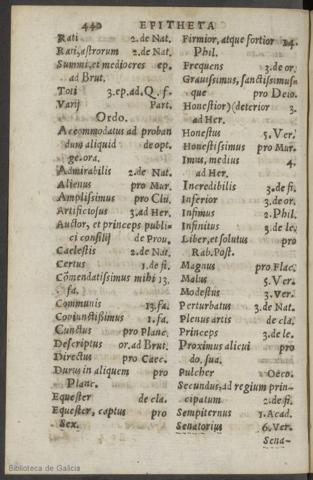 440 EPITHETA
Rati 2. de Nat.
Rati, astrorum 2. de Nat.
Summi, et mediocres ep.
ad Brut.
Toti 3. ep. ad. Q. f.
Varij Part.
Ordo.
Accommodatus ad proban
dum aliquid de opt.
ge. ora.
Admirabilis 2. de Nat.
Alienus pro Mur.
Amplissimus pro Clu.
Artificiosus 3. ad Her.
Auctor, et princeps publi-
ci consilij de Prou.
Caelestis 2. de Nat.
Certus 1. de fi.
Cõmendatissimus mihi 13.
fa.
Communis 13. fa.
Coniunctissimus 1. fa.
Cunctus pro Planc.
Descriptus or. ad Brut.
Directus pro Caec.
Durus in aliquem pro
Planc.
Equester de cla.
Equester, captus pro
Sex.
Firmior, atque fortior 14.
Phil.
Frequens 3. de or.
Grauissimus, sanctissimus-
que pro Deio.
Honestior) (deterior 3.
ad Her.
Honestus 5. Ver.
Honestissimus pro Mur.
Imus, medius 4.
ad Her.
Incredibilis 3. de fi.
Inferior 3. de or.
Infimus 2. Phil.
Infinitus 3. de le.
Liber, et solutus pro
Rab. Post.
Magnus pro Flac.
Malus 5. Ver.
Modestus 3. Ver.
Perturbatus 3. de Nat.
Plenus artis de cla.
Princeps 3. de le.
Proximus alicui pro
do. sua.
Pulcher Oeco.
Secundus, ad regium prin-
cipatum 2. de fi.
Sempiternus 1. Acad.
Senatorius 6. Ver.
Sena-
Biblioteca de Galicia